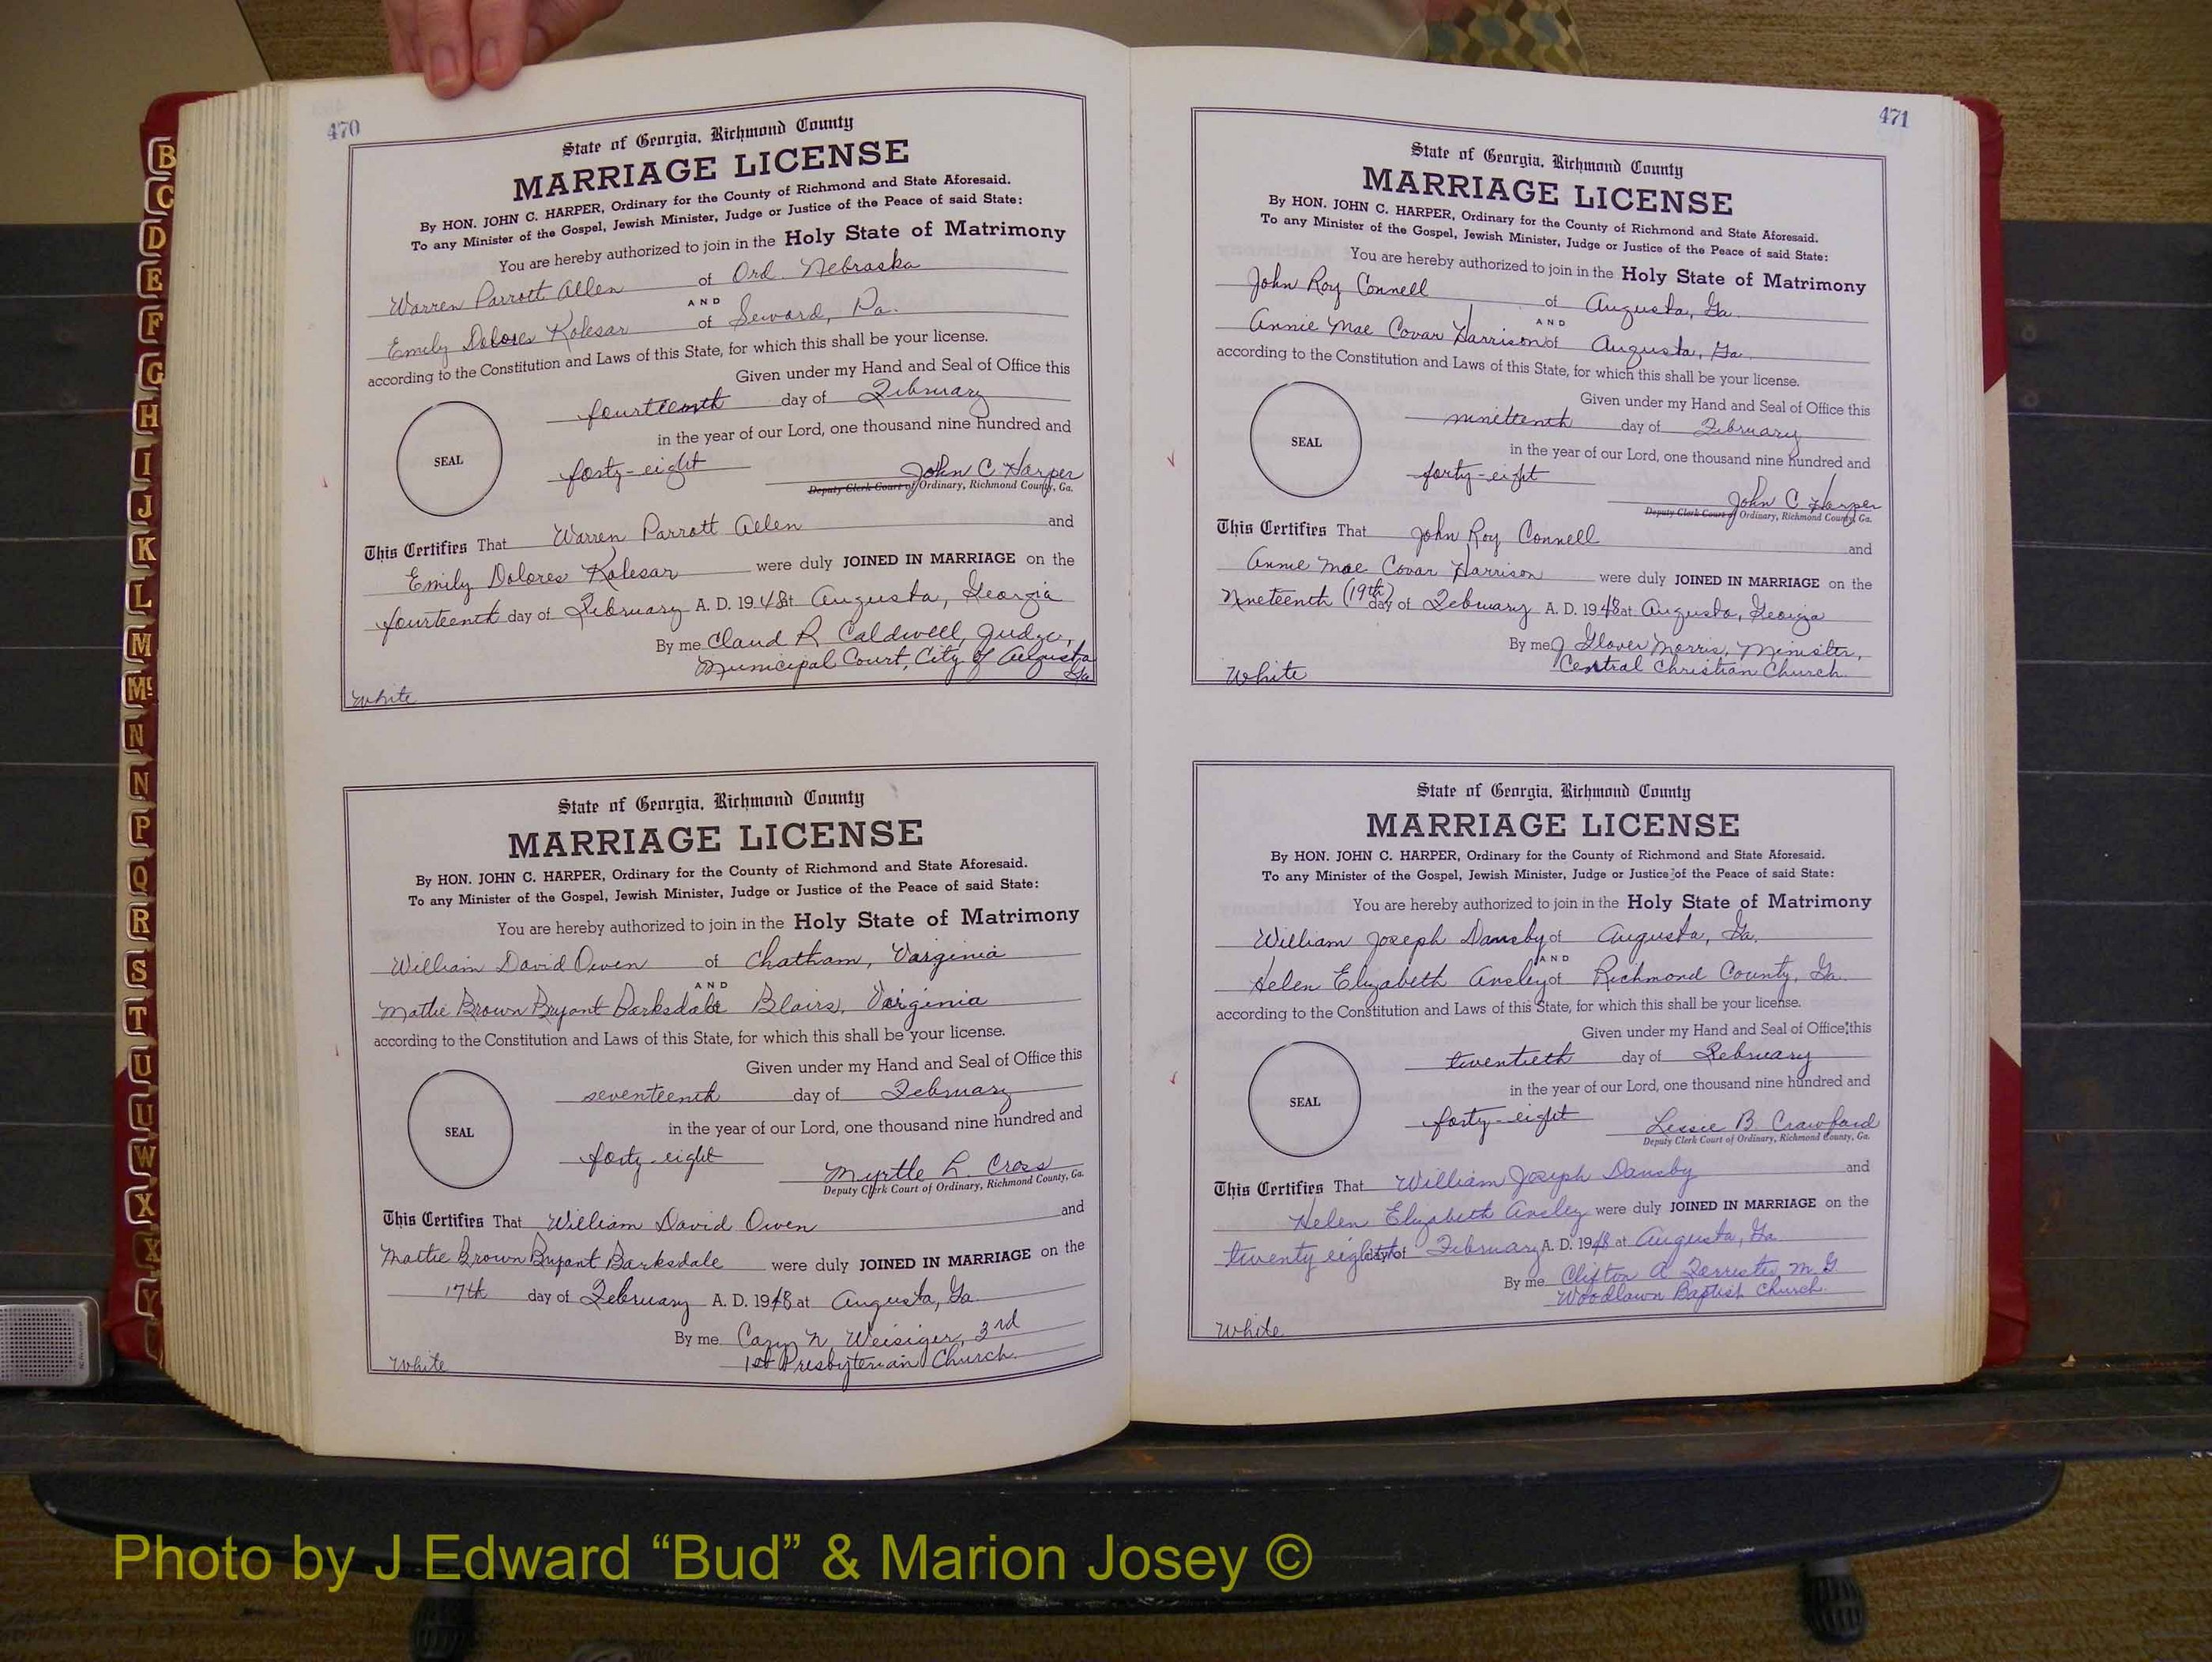 470
State of Georgia, Richmond County
MARRIAGE LICENSE
By HON. JOHN C. HARPER, Ordinary for the County of Richmond and State Aforesaid.
To any Minister of the Gospel, Jewish Minister, Judge or Justice of the Peace of said State:
You are hereby authorized to join in the Holy State of Matrimony
Warren Parrott Allen of Ord. Nebraska
AND
Emily Dolores Kolesar of Seward, Pa.
according to the Constitution and Laws of this State, for which this shall be your license.
Given under my Hand and Seal of Office this
fourteenth day of February
in the year of our Lord, one thousand nine hundred and
SEAL
forty-eight John C. Harper
Deputy Clerk Court of Ordinary, Richmond County, Ga.
This Certifies That Warren Parrott Allen and
Emily Dolores Kolesar were duly JOINED IN MARRIAGE on the
fourteenth day of February A. D. 1948 at Augusta, Georgia
By me Claud R Caldwell, Judge,
Municipal Court, City of Augusta
Ga
White
State of Georgia, Richmond County
MARRIAGE LICENSE
By HON. JOHN C. HARPER, Ordinary for the County of Richmond and State Aforesaid.
To any Minister of the Gospel, Jewish Minister, Judge or Justice of the Peace of said State:
You are hereby authorized to join in the Holy State of Matrimony
William David Owen of Chatham, Virginia
AND
Mattie Brown Bryant Barksdale Blairs, Virginia
according to the Constitution and Laws of this State, for which this shall be your license.
Given under my Hand and Seal of Office this
seventeenth day of February
in the year of our Lord, one thousand nine hundred and
SEAL
forty-eight Myrtle L. Cross
Deputy Clerk Court of Ordinary, Richmond County, Ga.
This Certifies That William David Owen and
Mattie Brown Bryant Barksdale were duly JOINED IN MARRIAGE on the
17th day of February A. D. 1948 at Augusta, Ga.
By me Cary N. Weisiger, 3rd
1st Presbyterian Church.
White
471
State of Georgia, Richmond County
MARRIAGE LICENSE
By HON. JOHN C. HARPER, Ordinary for the County of Richmond and State Aforesaid.
To any Minister of the Gospel, Jewish Minister, Judge or Justice of the Peace of said State:
You are hereby authorized to join in the Holy State of Matrimony
John Roy Connell of Augusta, Ga.
AND
Annie Mae Covar Harrison of Augusta, Ga.
according to the Constitution and Laws of this State, for which this shall be your license.
Given under my Hand and Seal of Office this
ninettenth day of February
in the year of our Lord, one thousand nine hundred and
SEAL
forty-eight John C. Harper
Deputy Clerk Court of Ordinary, Richmond County, Ga.
This Certifies That John Roy Connell and
Annie Mae Covar Harrison were duly JOINED IN MARRIAGE on the
Nineteenth (19th) day of February A. D. 1948 at Augusta, Georgia
By me J Glover Morris, Minister,
Central Christian Church.
White
State of Georgia, Richmond County
MARRIAGE LICENSE
By HON. JOHN C. HARPER, Ordinary for the County of Richmond and State Aforesaid.
To any Minister of the Gospel, Jewish Minister, Judge or Justice of the Peace of said State:
You are hereby authorized to join in the Holy State of Matrimony
William Joseph Dansby of Augusta, Ga.
AND
Helen Elizabeth Ansley of Richmond County, Ga.
according to the Constitution and Laws of this State, for which this shall be your license.
Given under my Hand and Seal of Office this
twentieth day of February
in the year of our Lord, one thousand nine hundred and
SEAL
forty-eight Lessie B. Crawford
Deputy Clerk Court of Ordinary, Richmond County, Ga.
This Certifies That William Joseph Dansby and
Helen Elizabeth Ansley were duly JOINED IN MARRIAGE on the
twenty eighth day of February A. D. 1948 at Augusta, Ga.
By me Clifton A. Forrester M. G
Woodlawn Baptist Church.
White
B
C
D
E
F
G
H
I
J
K
L
M
Mc
N
N
P
Q
R
S
T
U
U
W
X
X
Y
Photo by J Edward “Bud” & Marion Josey ©